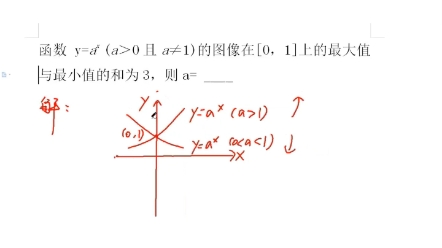 函数 y=aˣ (a>0 且 a≠1)的图像在[0, 1]上的最大值
与最小值的和为 3，则 a= ____
解：
y
y=aˣ (a>1) ↑
(0,1)
y=aˣ (0<a<1) ↓
x